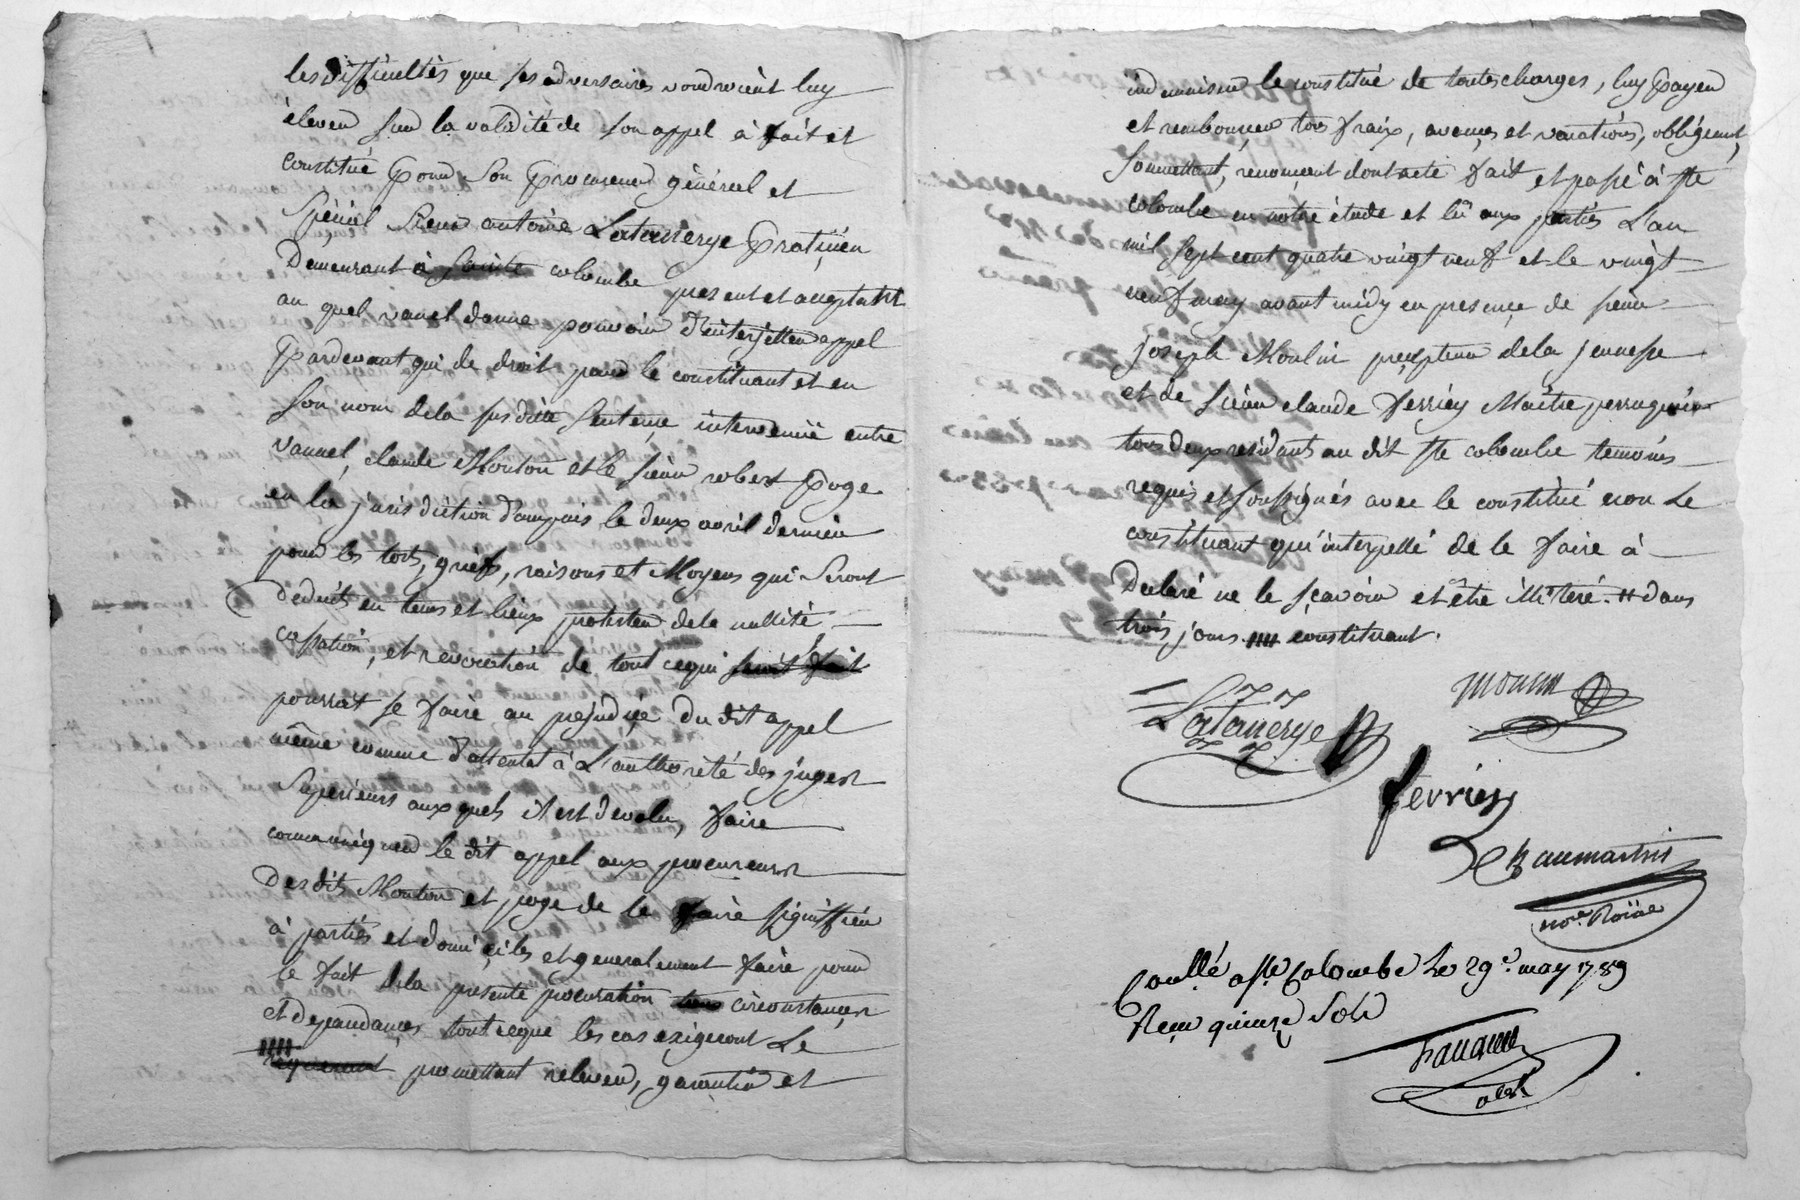 les difficultés que ses adversaires voudroient luy
élever sur la validité de son appel à fait et
constitué pour son procureur général et
spécial sieur antoine Latanerye praticien
Demeurant à Sainte colombe present et acceptant
au quel vanel donne pouvoir d'interjetter appel
pardevant qui de droit pour le constituant et en
son nom dela susditte sentence intervenuë entre
vannel, claude Mouton et le sieur robert poge
en la jurisdiction d'ampuis le deux avril dernier
pour les torts, griefs, raisons et Moyens qui seront
Deduits en tems et lieux protester dela nullité
cassation, et revocation de tout cequi seroit fait
pourrait se faire au prejudice du dit appel
même comme d'attentat à L'authorité des juges
superieurs aux quels il est devolu, faire
communiquer le dit appel aux procureurs
Desdits Mouton et poge de le faire signiffier
à parties et domiciles et generalement faire pour
le fait dela presente procuration circonstances
et dependances tout ceque les cas exigeront Le
requerant promettant relever, garantir et
indemniser le constitué de toutes charges, luy payer
et rembourser tous fraix, avances et vacations, obligeant,
soumettant, renonçant dont acte fait et passé à ste
colombe en notre étude et lû aux parties L'an
mil sept cent quatre vingt neuf et le vingt
neuf may avant midy en presence de sieur
joseph Moulin precepteur dela jeunesse
et de sieur claude ferriey Maître perruquier
tous deux residants au dit ste colombe temoins
requis et soussignés avec le constitué non Le
constituant qui interpellé de le faire à
Declaré ne le sçavoir et être illiteré. # dans
trois jours. #### constituant.
Latanerye
ferriey
Chaumartin
no.re Roïal
Con.llé a Ste Colombe Le 29e. may 1789
Reçu quinze Sols